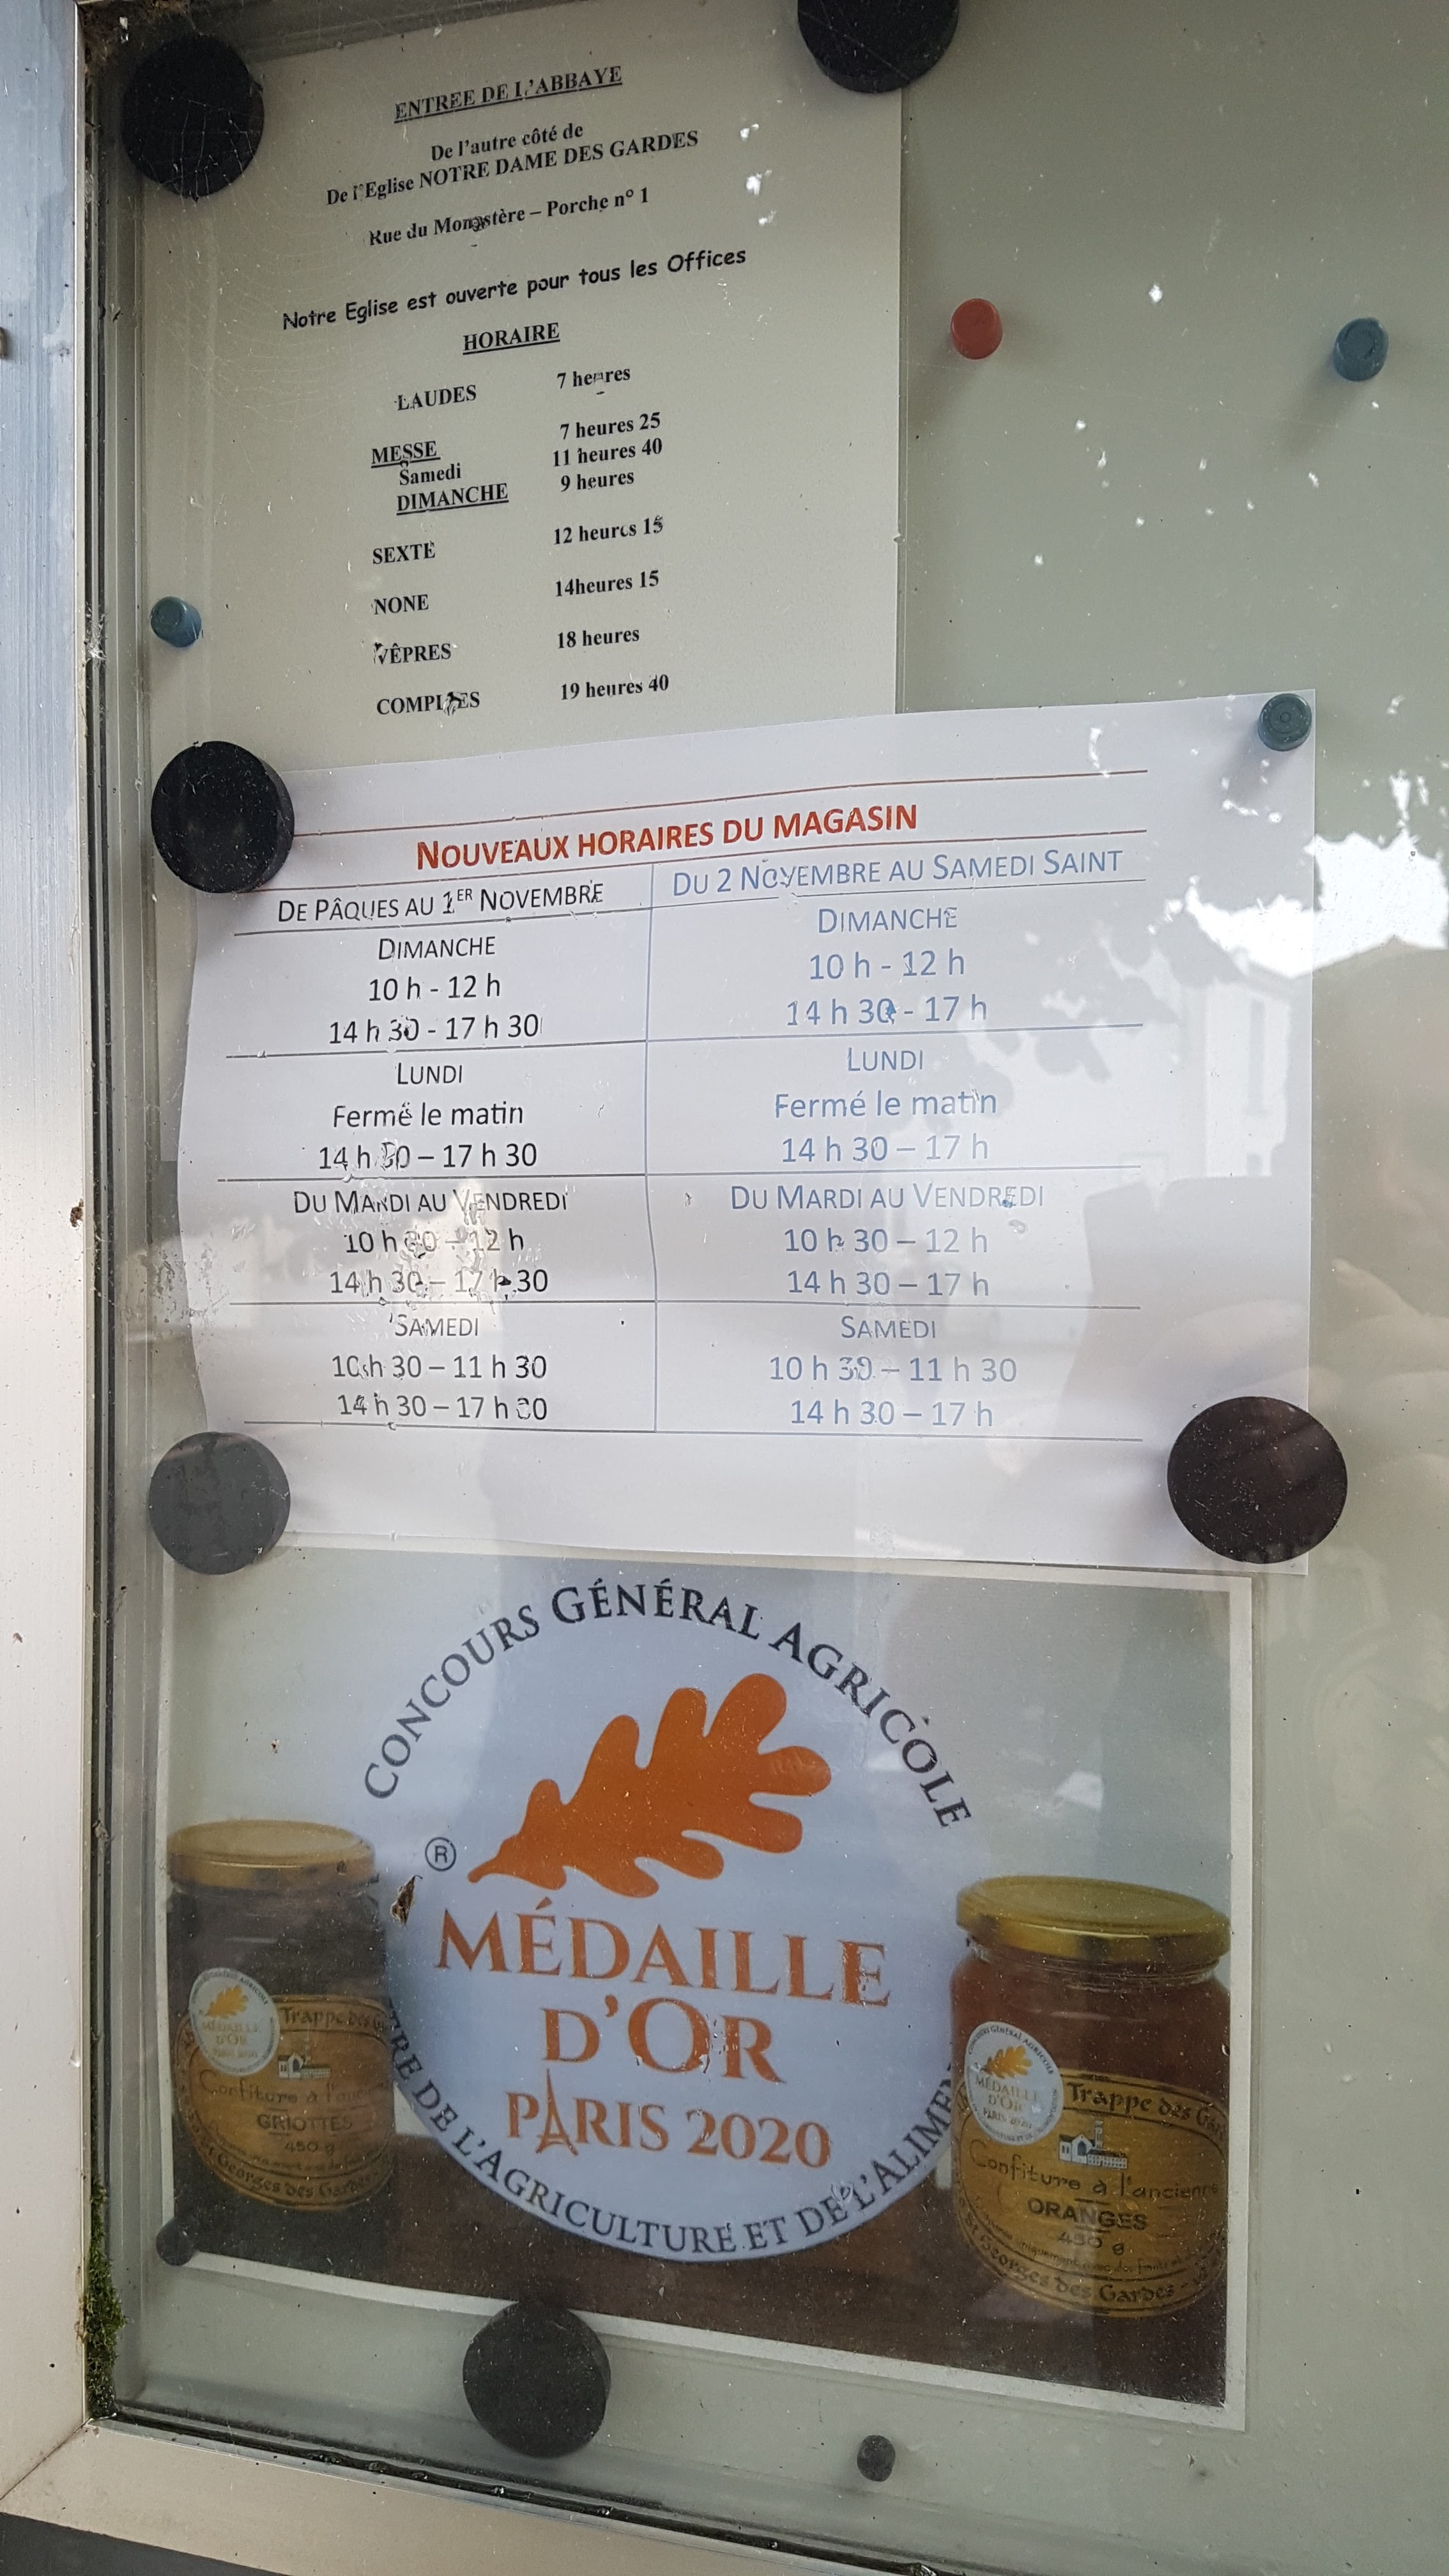 ENTREE DE L'ABBAYE
De l'autre côté de
De l'Eglise NOTRE DAME DES GARDES
Rue du Monastère – Porche n° 1
Notre Eglise est ouverte pour tous les Offices
HORAIRE
LAUDES 7 heures
MESSE 7 heures 25
Samedi 11 heures 40
DIMANCHE 9 heures
SEXTE 12 heures 15
NONE 14heures 15
VÊPRES 18 heures
COMPLIES 19 heures 40
NOUVEAUX HORAIRES DU MAGASIN
DE PÂQUES AU 1ER NOVEMBRE
DIMANCHE
10 h - 12 h
14 h 30 - 17 h 30
LUNDI
Fermé le matin
14 h 30 – 17 h 30
DU MARDI AU VENDREDI
10 h 30 – 12 h
14 h 30 – 17 h 30
SAMEDI
10 h 30 – 11 h 30
14 h 30 – 17 h 30
DU 2 NOVEMBRE AU SAMEDI SAINT
DIMANCHE
10 h - 12 h
14 h 30 - 17 h
LUNDI
Fermé le matin
14 h 30 – 17 h
DU MARDI AU VENDREDI
10 h 30 – 12 h
14 h 30 – 17 h
SAMEDI
10 h 30 – 11 h 30
14 h 30 – 17 h
CONCOURS GÉNÉRAL AGRICOLE
®
MÉDAILLE
D'OR
PARIS 2020
DE L'AGRICULTURE ET DE L'ALIMEN
MÉDAILLE
D'OR
PARIS 2020
Trappe des G
Confiture à l'ancien
GRIOTTES
450 g
St Georges des Gardes
CONCOURS GÉNÉRAL AGRICOLE
MÉDAILLE
D'OR
PARIS 2020
Trappe des Gar
Confiture à l'ancienne
ORANGES
450 g
uniquement avec des fruits et
St Georges des Gardes